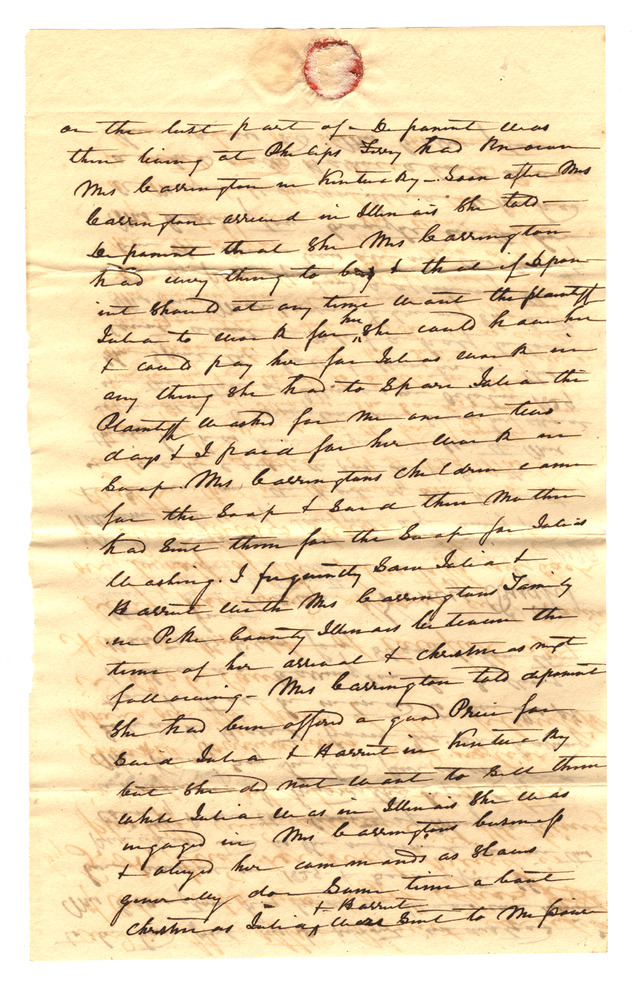 or the last part of - Deponent was
then living at Philips Ferry had Known
Mrs Carrington in Kentucky - Soon after Mrs
Carrington arrived in Illinois She told -
Deponent that She Mrs Carrington
had every thing to buy & that if Depon
ent Should at any time want the plaintiff
Julia to work for her She could have her
& could pay her for Julias work in
any thing She had to Spare Julia the
Plaintiff Washed for me one or two
days & I paid for her work in
Soap Mrs Carringtons Children came
for the Soap & Said their Mother
had Sent them for the Soap for Julias
Washing. I frequently Saw Julia &
Harriet with Mrs Carringtons Family
in Pike County Illinois between the
time of her arrival & Christmas next
following - Mrs Carrington told deponent
She had been offered a good Price for
Said Julia & Harriet in Kentucky
but She did not want to Sell them
while Julia was in Illinois She was
ingaged in Mrs Carringtons business
& obeyed her commands as Slaves
generally do - Some time about
Christmas Julia & Harriet was Sent to Mr